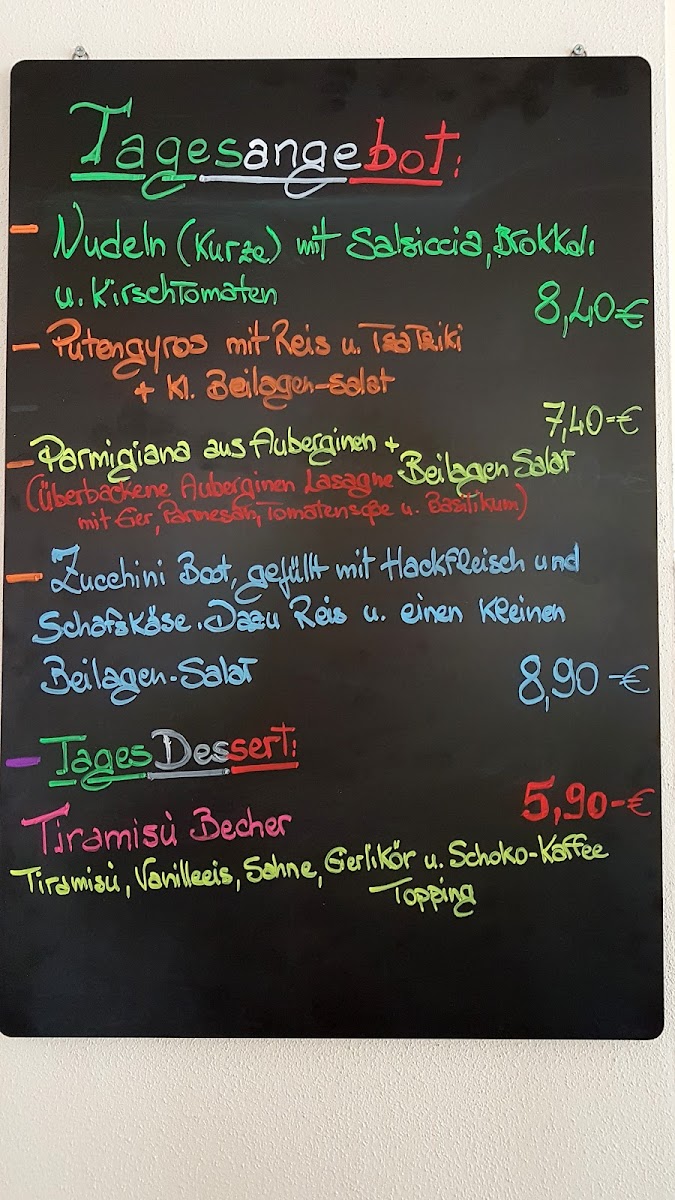 Tagesangebot:
- Nudeln (Kurze) mit Salsiccia, Brokkoli
u. Kirschtomaten 8,40€
- Putengyros mit Reis u. TzaTziki
+ Kl. Beilagen-Salat
7,40-€
- Parmigiana aus Auberginen +
Beilagen Salat
(Überbackene Auberginen Lasagne
mit Eier, Parmesan, Tomatensoße u. Basilikum)
- Zucchini Boot, gefüllt mit Hackfleisch und
Schafskäse. Dazu Reis u. einen kleinen
Beilagen-Salat 8,90-€
- TagesDessert:
5,90-€
Tiramisù Becher
Tiramisù, Vanilleeis, Sahne, Eierlikör u. Schoko-Kaffee
Topping